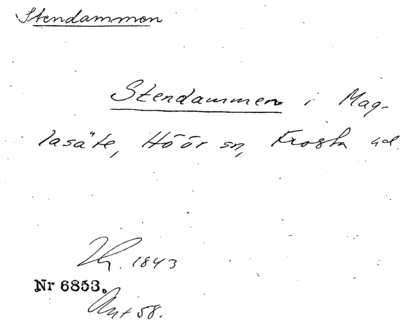 Stendammen
Stendammen i Mag-
lasäte, Höör sn, Frosta hd.
1843
Nr 6853.
Ant 58.